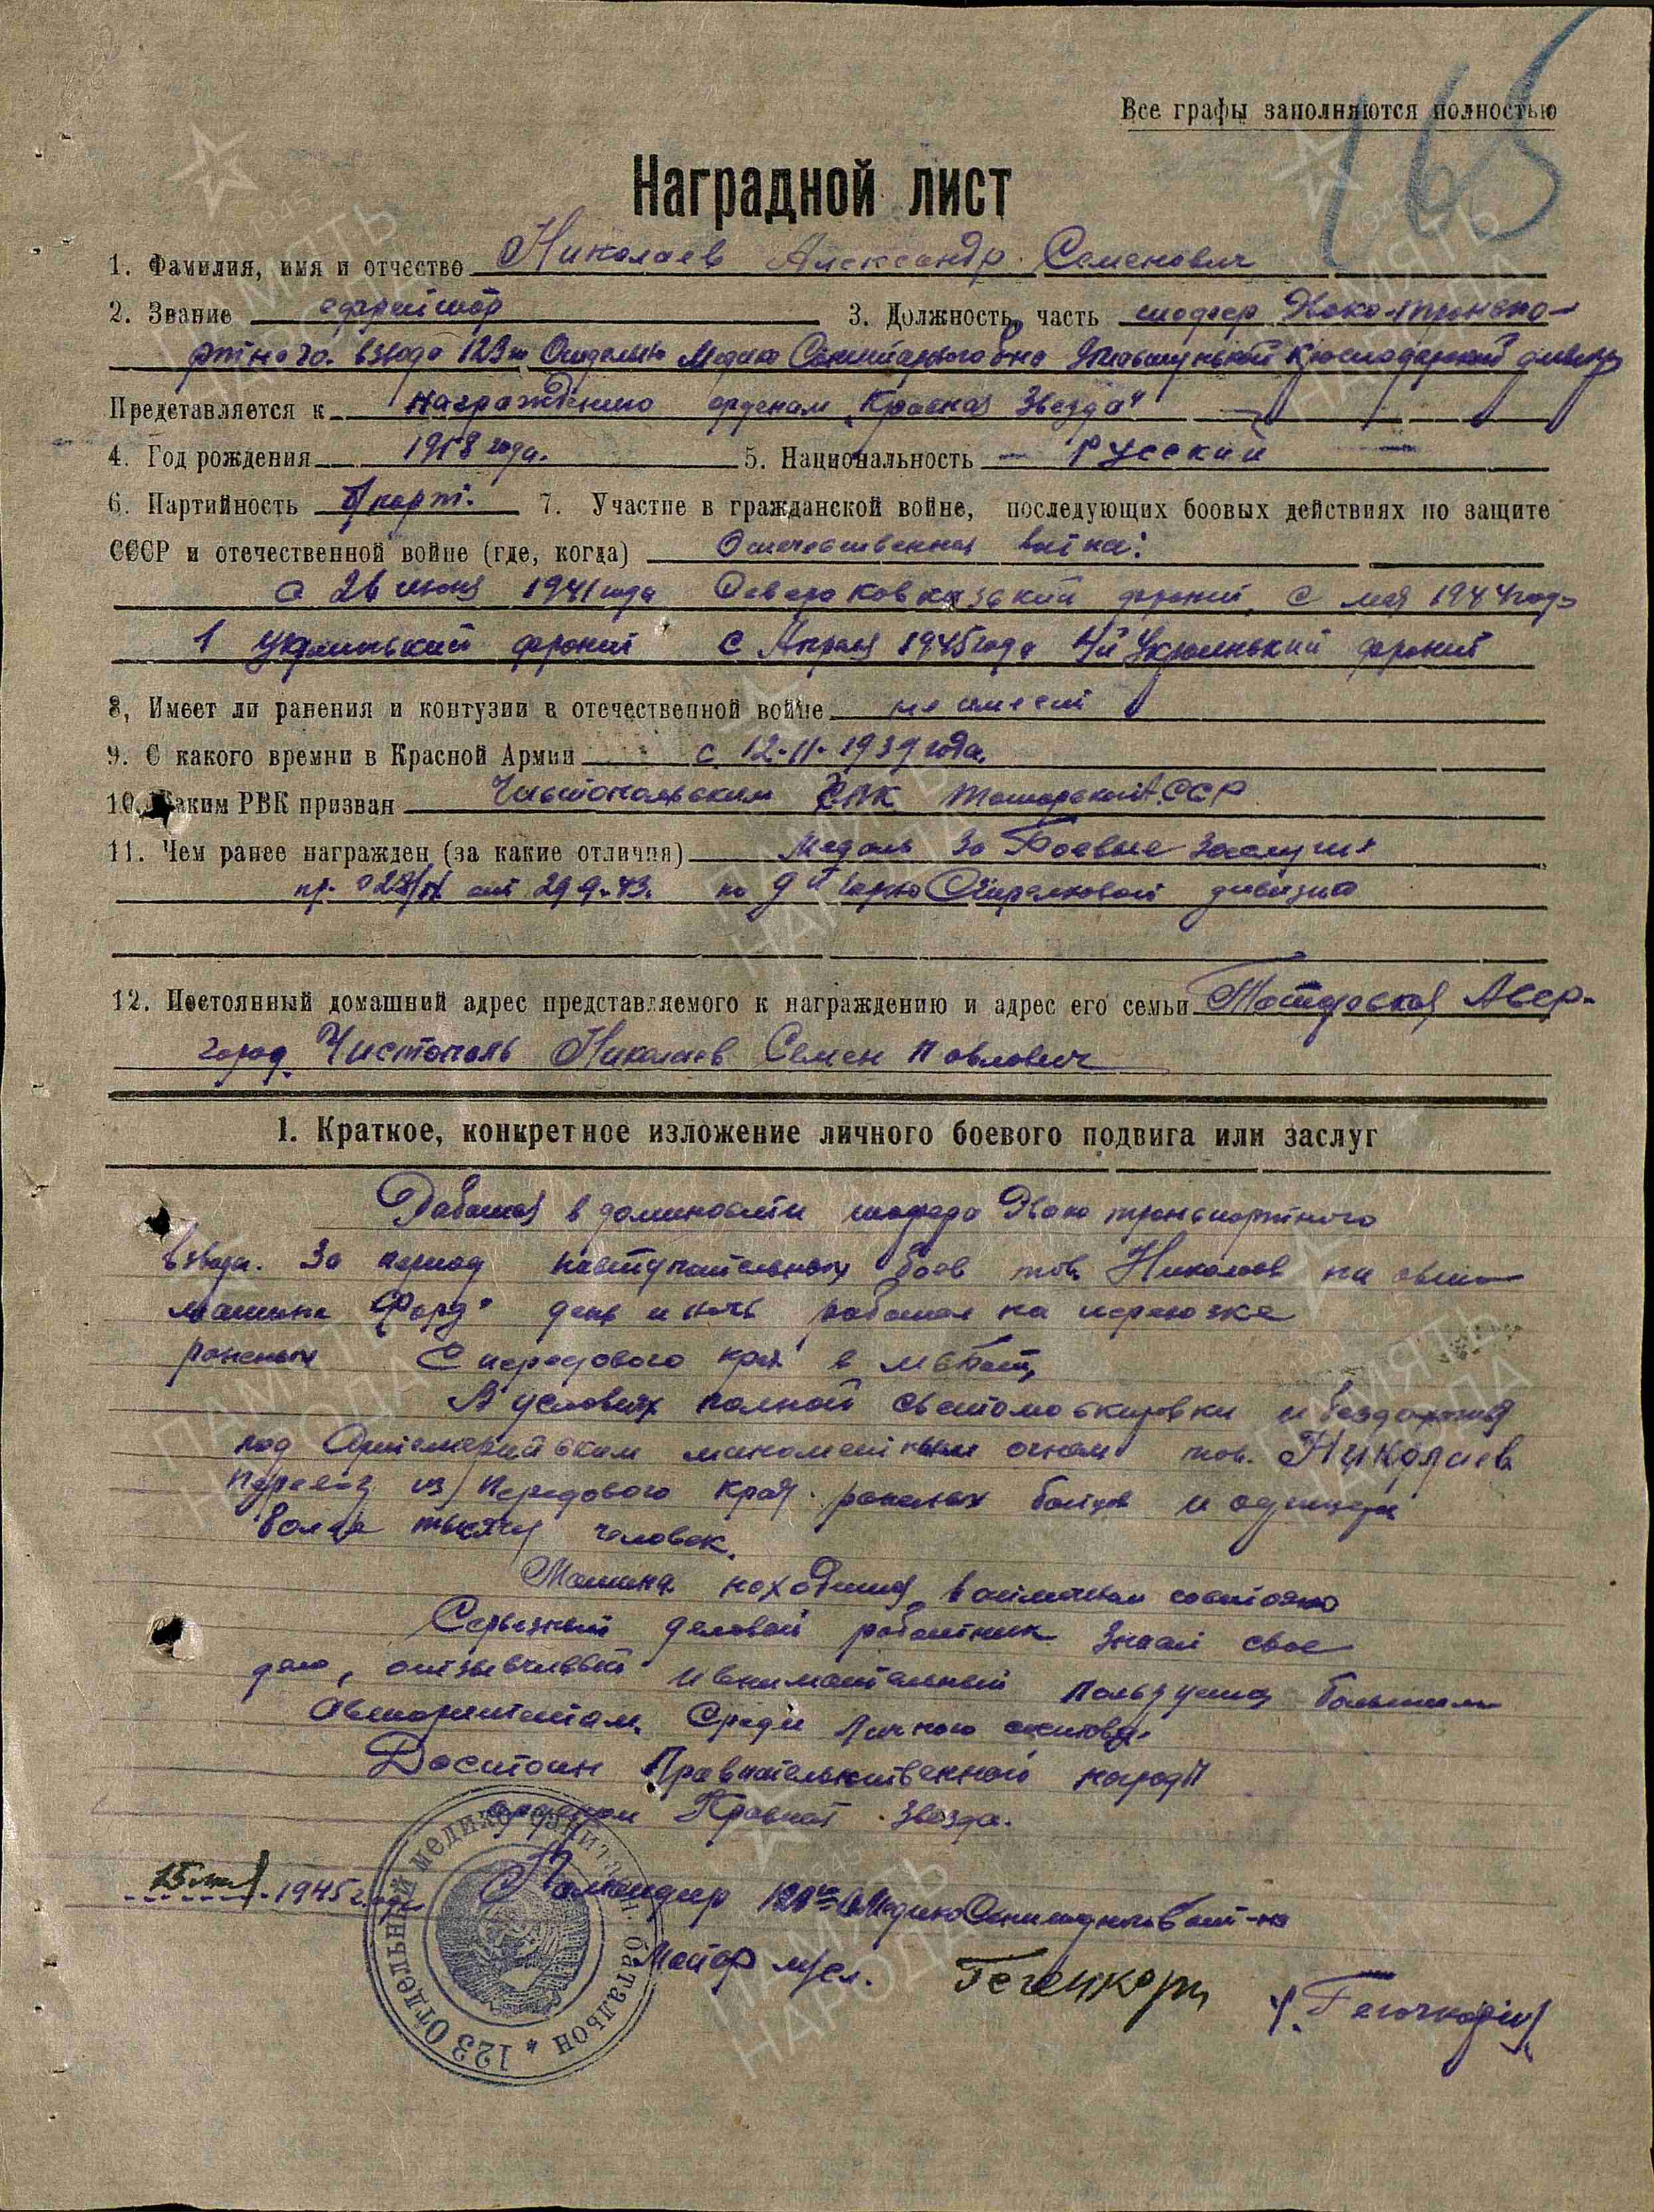 165
Все графы заполняются полностью
Наградной лист
1. Фамилия, имя и отчество Николаев Александр Семенович
2. Звание ефрейтор 3. Должность, часть шофер Эвако-транспо-
ртного взвода 123го Отдельно Медико Санитарного б-на Краснодарской
Представляется к награждению орденом "Красная Звезда"
4. Год рождения 1918 года. 5. Национальность — Русский —
6. Партийность 7. Участие в гражданской войне, последующих боовых действиях по защите
СССР и отечественной войне (где, когда) Отечественная война:
с 26 июня 1941 года Северо Кавказский фронт, с мая 1944 года
1 Украинский фронт с Апреля 1945 года 4й Украинский фронт
8, Имеет ли ранения и контузии в отечественной войне не имеет
9. С какого времни в Красной Армии с 12-11-1939 года.
10. Каким РВК призван Чистопольским Татарской АССР
11. Чем ранее награжден (за какие отличия) Медаль За Боевые Заслуги
пр. 028/н от 29.9.43. по 9й Горно Стрелковой дивизии
12. Постоянный домашний адрес представляемого к награждению и адрес его семьи Татарская Асср-
город Чистополь Николаев Семен Павлович
1. Краткое, конкретное изложение личного боевого подвига или заслуг
Работая в должности шофера Эвако транспортного
взвода. За период наступательных боев тов Николаев на авто
машине "Форд" день и ночь работал на перевозке
раненых С передового края в МСБат,
В условиях полной светомаскировки и бездорожия
под Артилерийским минометным огнем тов. Николаев
перевез из Передового края раненых бойцов и офицеров
более тысячи человек.
Машина находится в отличном состоянии
Серьезный деловой работник знает свое
дело, отзывчивый и внимательный пользуется большим
Авторитетам Среди личного состава.
Достоин Правительственной награды
орденом Красная Звезда.
15 мая 1945 года Командир 123го ОМедико Санитарного бат-на
Майор м/сл. Гегечкори /Гегечкори/
123 Отдельный медико-санитарн. батальон *
ПАМЯТЬ НАРОДА